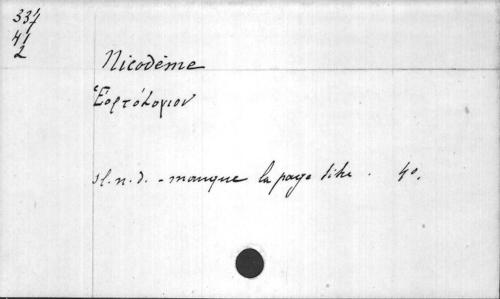 337
41
2
Nicodème
Ἑορτολόγιον
sl.n.d. - manque la page titre. 4°.